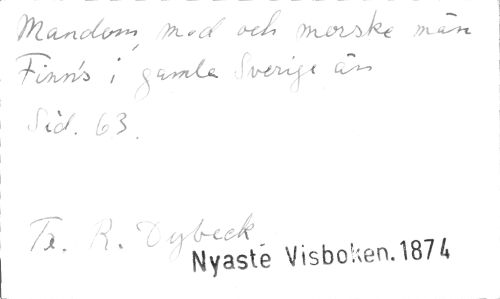 Mandom, mod och morske män
Finn's i gamla Sverige än
Sid. 63.
Tr. R. Dybeck
Nyaste Visboken. 1874